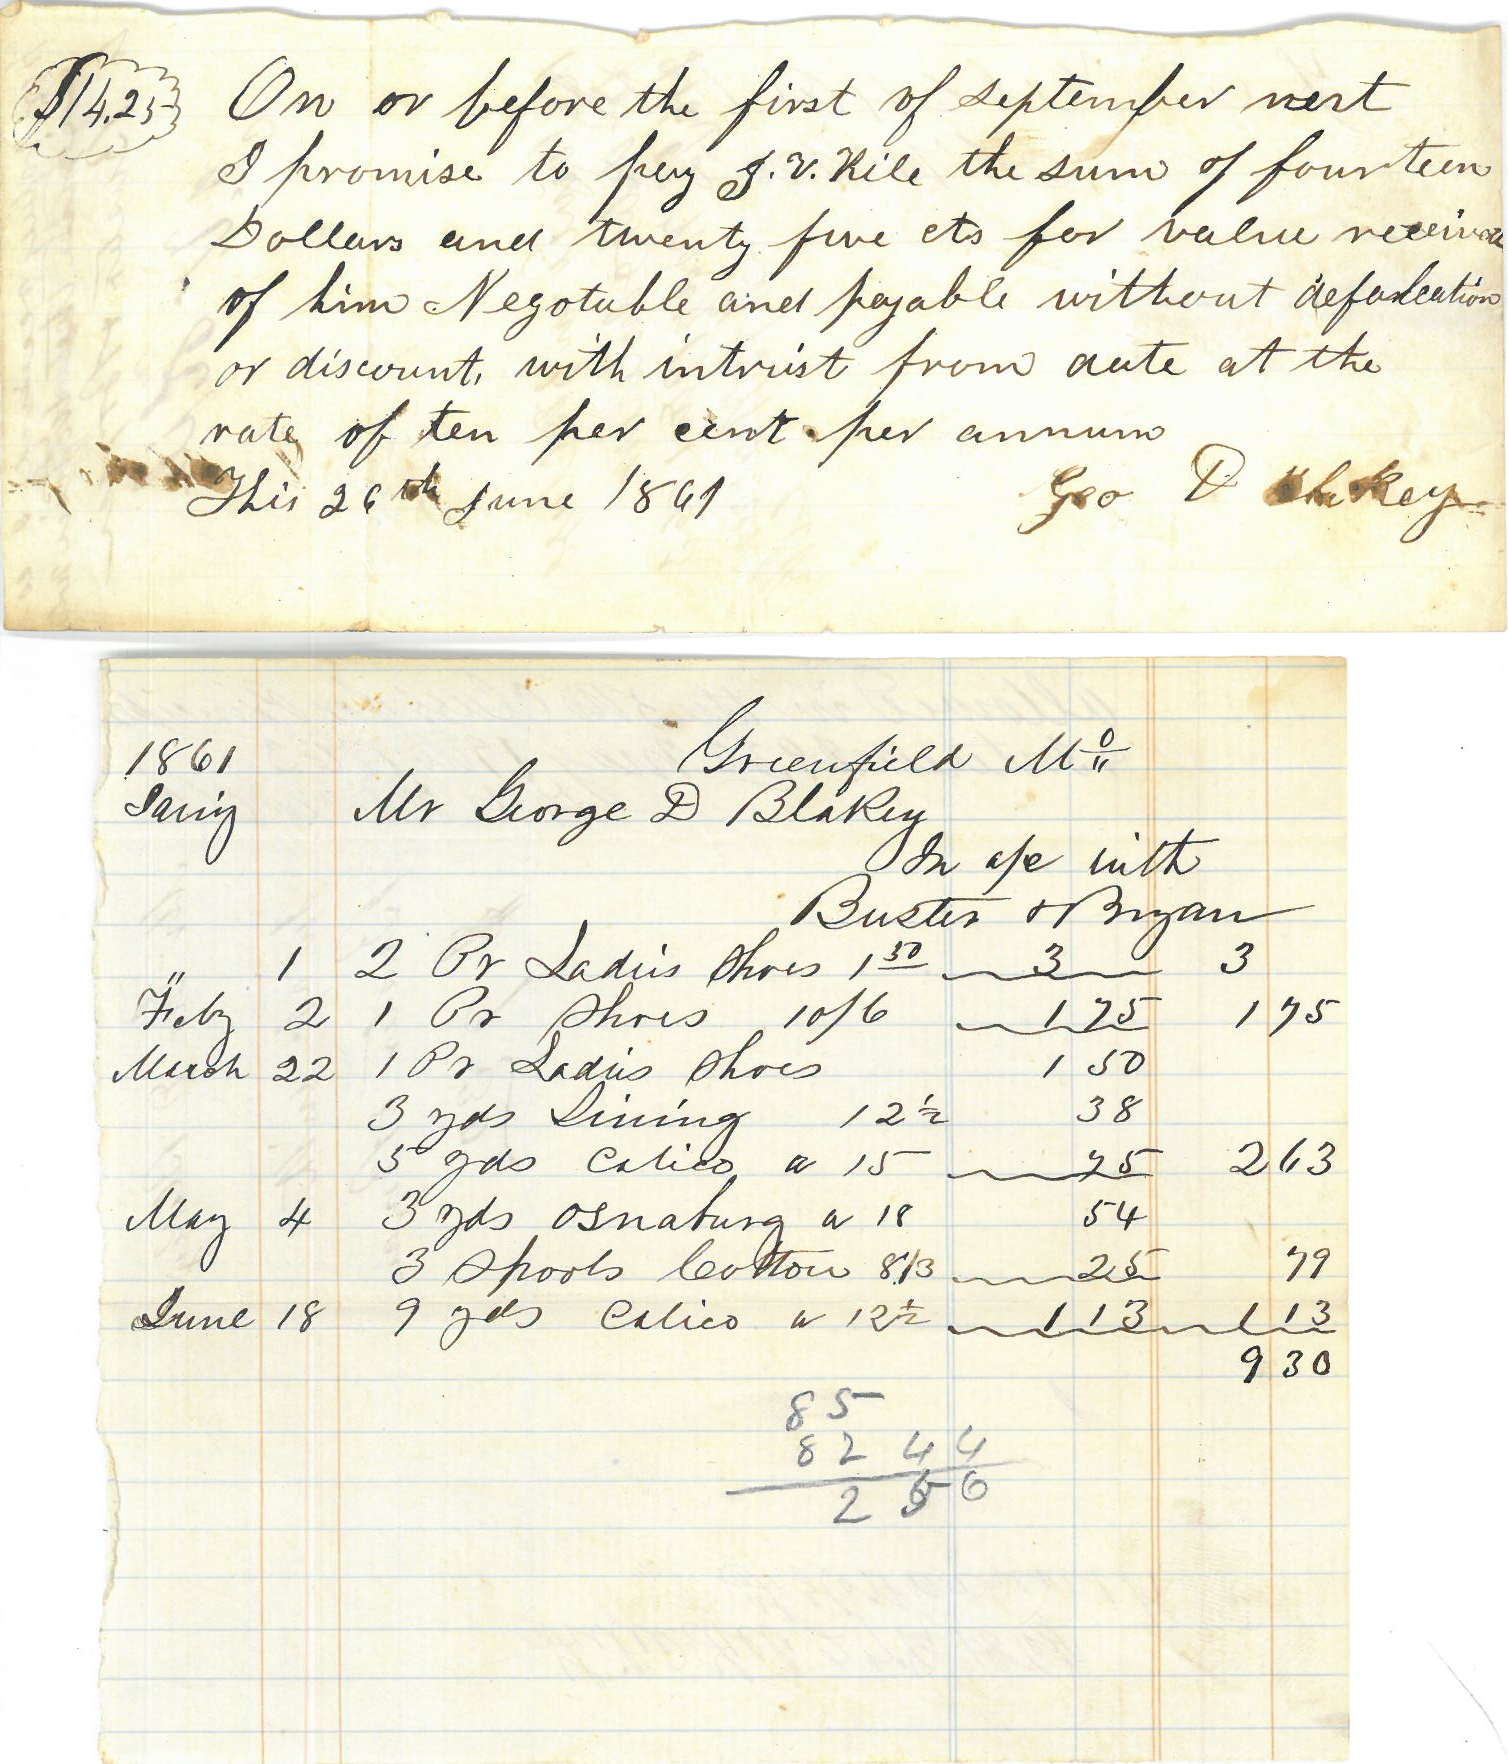 $14.25 On or before the first of September next
I promise to pay J. V. Kile the sum of fourteen
Dollars and twenty five cts for value received
of him Negotable and payable without defalcation
or discount, with intrust from date at the
rate of ten per cent per annum
This 26th June 1861 Geo D Blakey
1861 Greenfield Mo
Jan'y Mr George D Blakey
In a/c with
Buster & Bryan
" 1 2 Pr Ladies Shoes 1 50 3 3
Feby 2 1 Pr Shoes 10/6 1 75 1 75
March 22 1 Pr Ladies Shoes 1 50
3 yds Lining 12 1/2 38
5 yds Calico a 15 75 2 63
May 4 3 yds Osnaburg a 18 54
3 Spools Cotton 8 1/3 25 79
June 18 9 yds Calico a 12 1/2 1 13 1 13
9 30
85
82 44
2 56